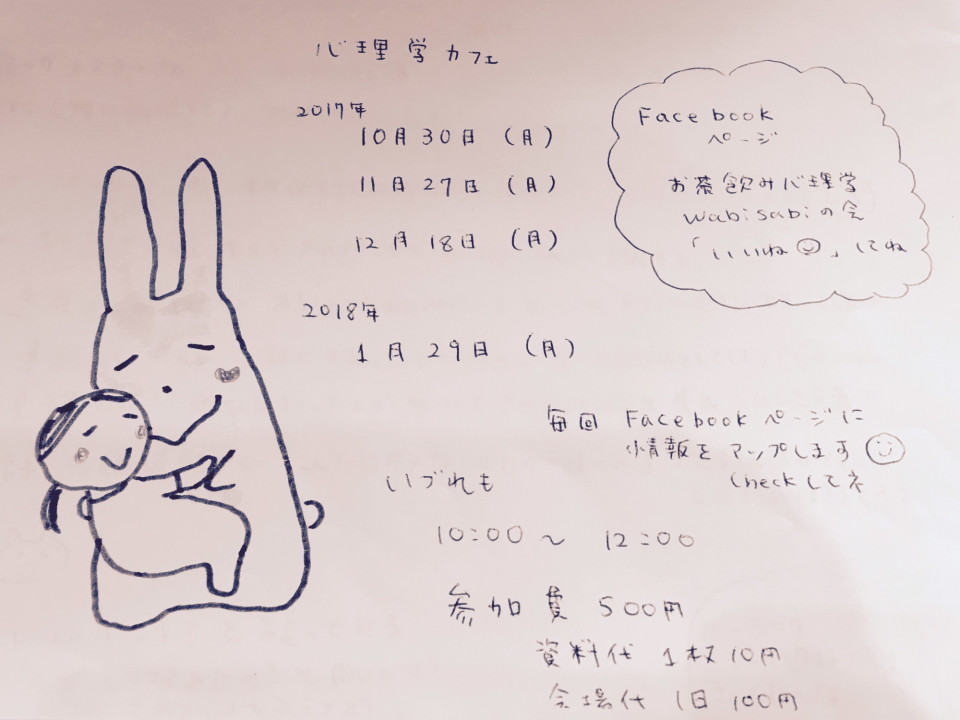 心理学カフェ
2017年
10月30日(月)
11月27日(月)
12月18日(月)
2018年
1月29日(月)
Facebook
ページ
お茶飲み心理学
wabisabiの会
「いいね」してね
毎回 Facebookページに
情報をアップします
checkしてネ
いづれも
10:00～ 12:00
参加費 500円
資料代 1枚10円
会場代 1日100円